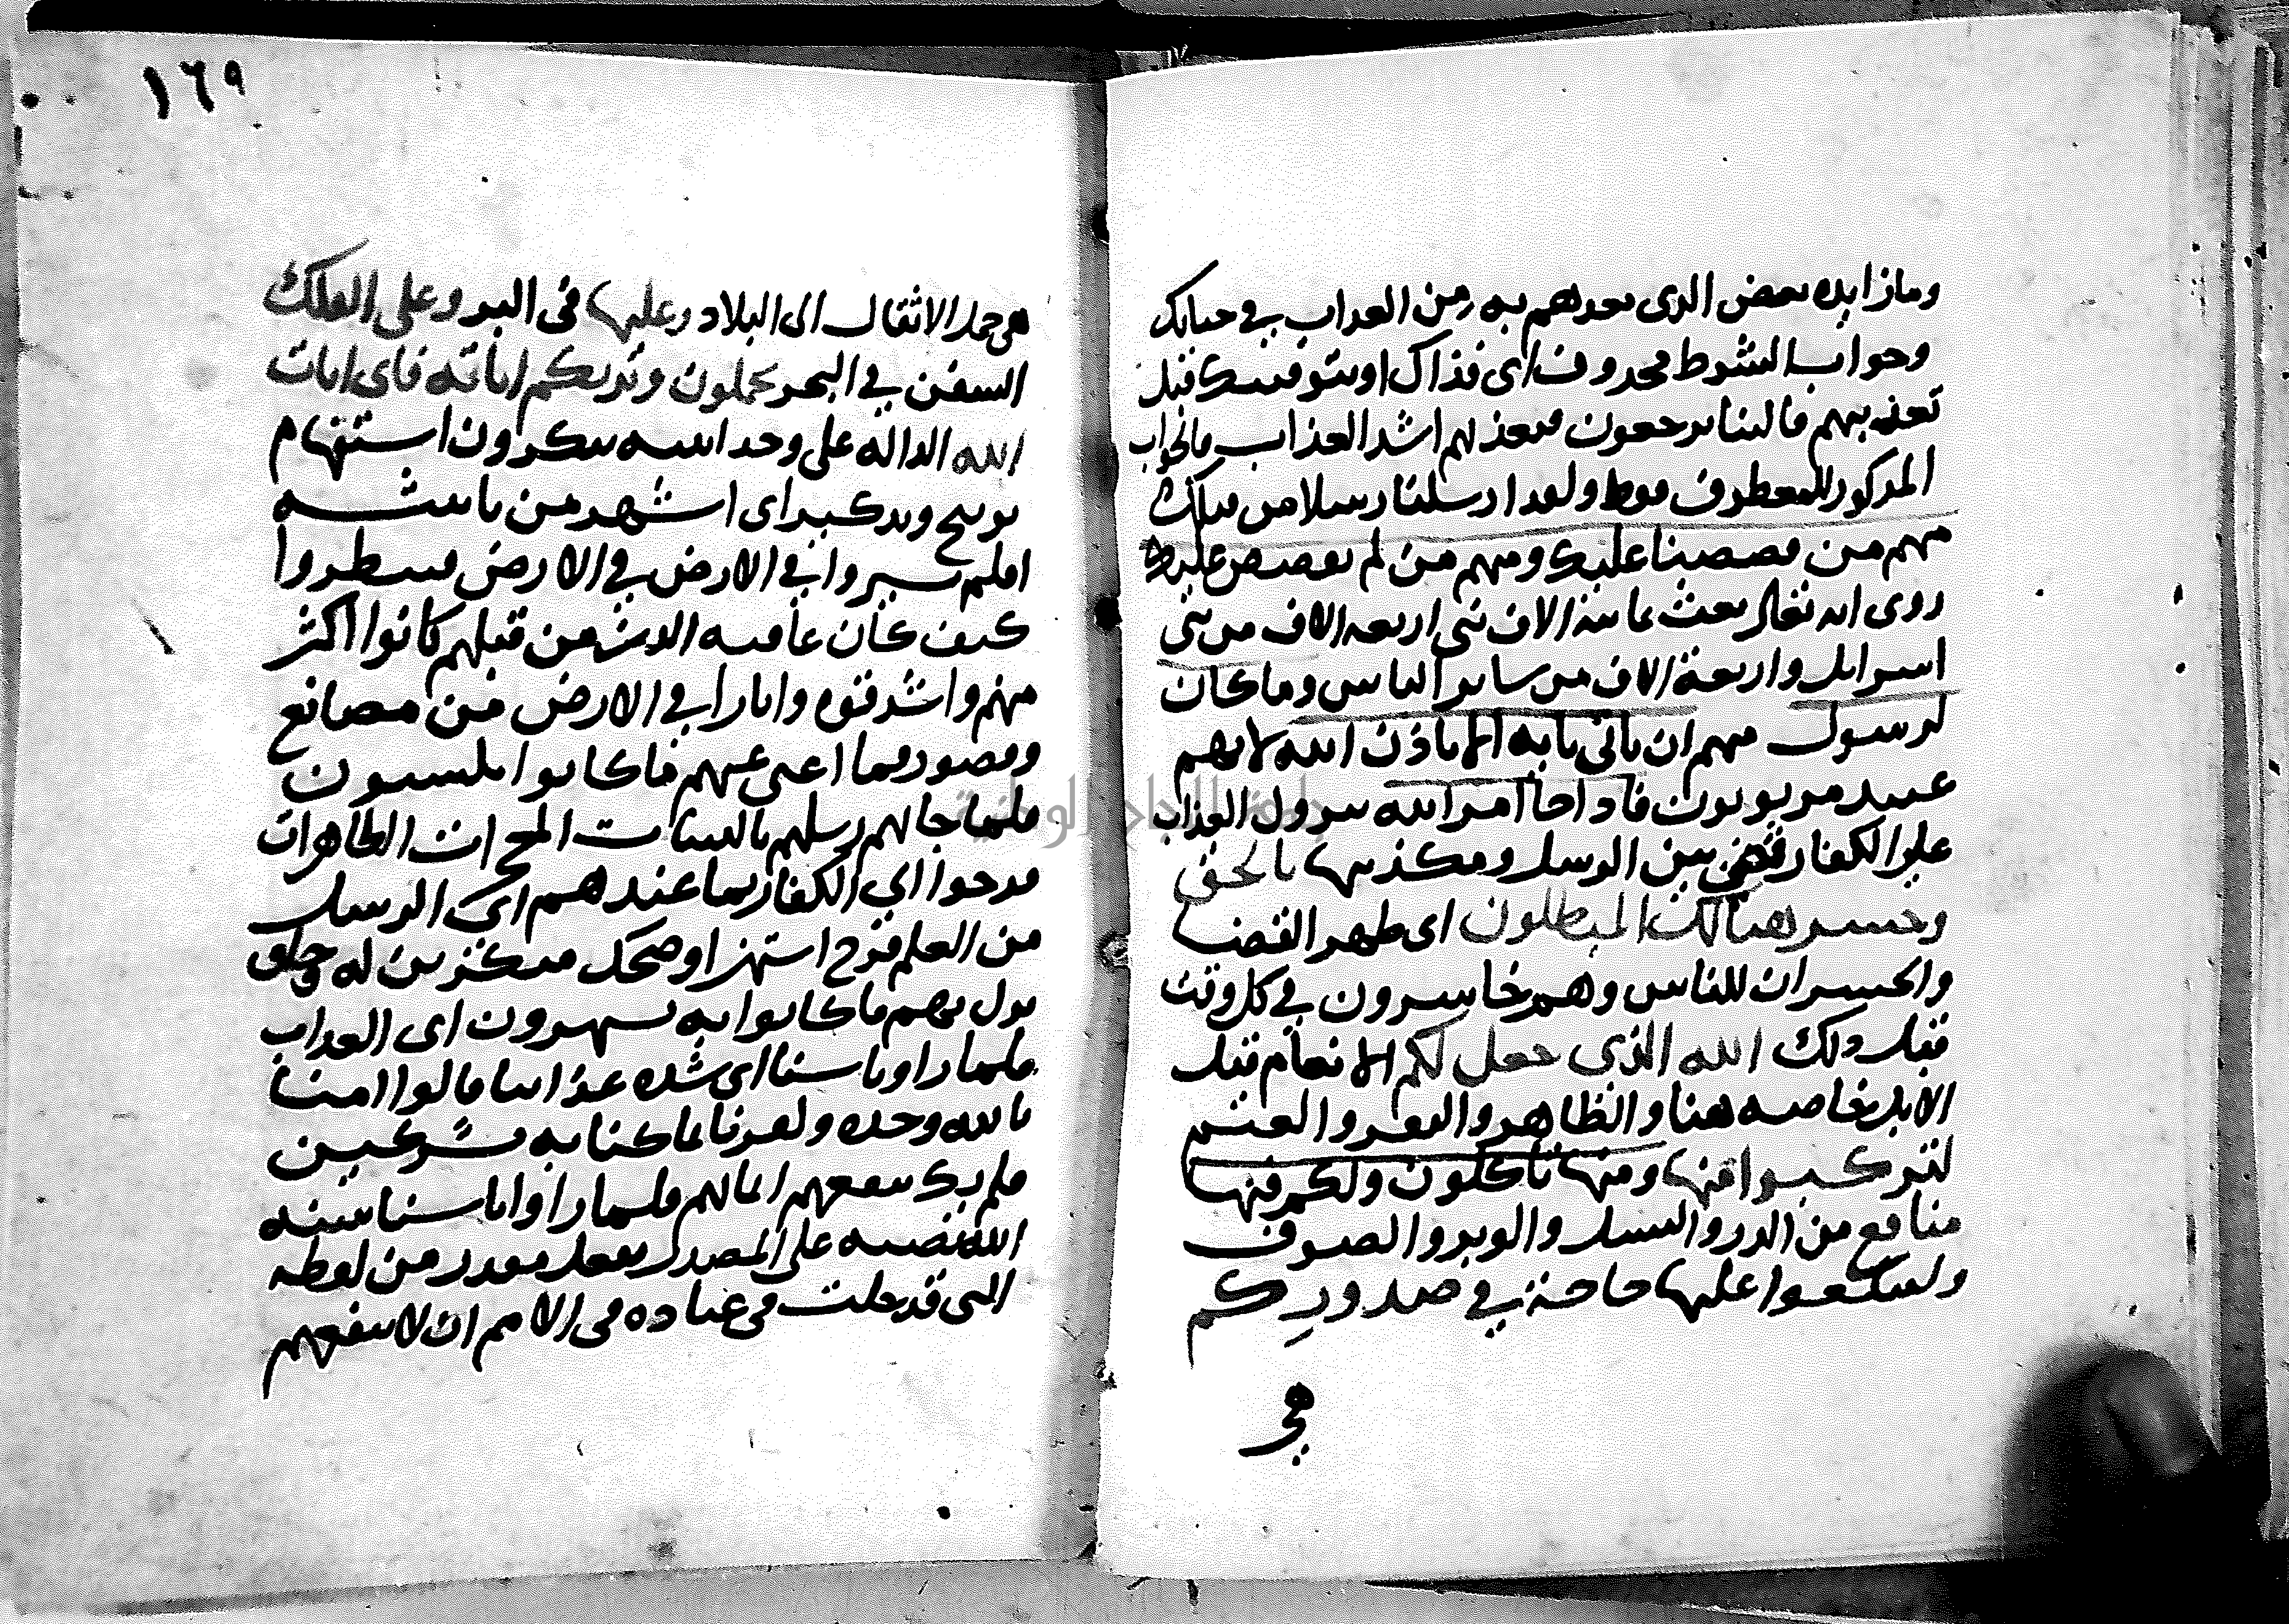 وما زايده بعض الذى نعدهم به من العذاب في حياتك
وجواب الشرط محذوف اى فذاك او نتوفينك قبل
تعذيبهم فالينا يرجعون فنعذبهم اشد العذاب فالجواب
المذكور للمعطوف فقط ولقد ارسلنا رسلا من قبلك
منهم من قصصنا عليك ومنهم من لم نقصص عليك
روى انه تعالى بعث ثمانية الاف نبى اربعة الاف من بنى
اسرايل واربعة الاف من ساير الناس وما كان
لرسول منهم ان ياتى باية الا باذن الله لانهم
عبيد مربوبون فاذا جا امر الله بنزول العذاب
على الكفار قضى بين الرسل ومكذبيها بالحق
وخسر هنالك المبطلون اى ظهر القضا
والخسران للناس وهم خاسرون في كل وقت
قبل ذلك الله الذى جعل لكم الانعام قيل
الابل خاصه هنا والظاهر والبقر والغنم
لتركبوا منها ومنها تاكلون ولكم فيها
منافع من الدر والنسل والوبر والصوف
ولتبلغوا عليها حاجة في صدوركم
هي
١٦٩
هى حمل الاثقال الى البلاد وعليها فى البر وعلى الفلك
السفن في البحر تحملون ويريكم اياته فاى ايات
الله الداله على وحدانيته تنكرون استفهام
توبيخ وتذكير اى اشهر من تانيثه
افلم يسيروا في الارض في الارض فينظروا
كيف كان عاقبه الذين من قبلهم كانوا اكثر
منهم واشد قوه واثارا في الارض من مصانع
وقصور فما اغنى عنهم ما كانوا يكسبون
فلما جاتهم رسلهم بالبينات المعجزات الظاهرات
فرحوا اي الكفار بما عندهم اى الرسل
من العلم فرح استهزا وضحك منكرين له وحاق
نزل بهم ما كانوا به يستهزون اى العذاب
فلما راوا باسنا اى شده عذابنا قالوا امنا
بالله وحده وكفرنا بما كنا به مشركين
فلم يك ينفعهم ايمانهم لما راوا باسنا سنه
الله نصبه على المصدر بفعل مقدر من لفظه
التى قد خلت فى عباده فى الامم ان لا ينفعهم